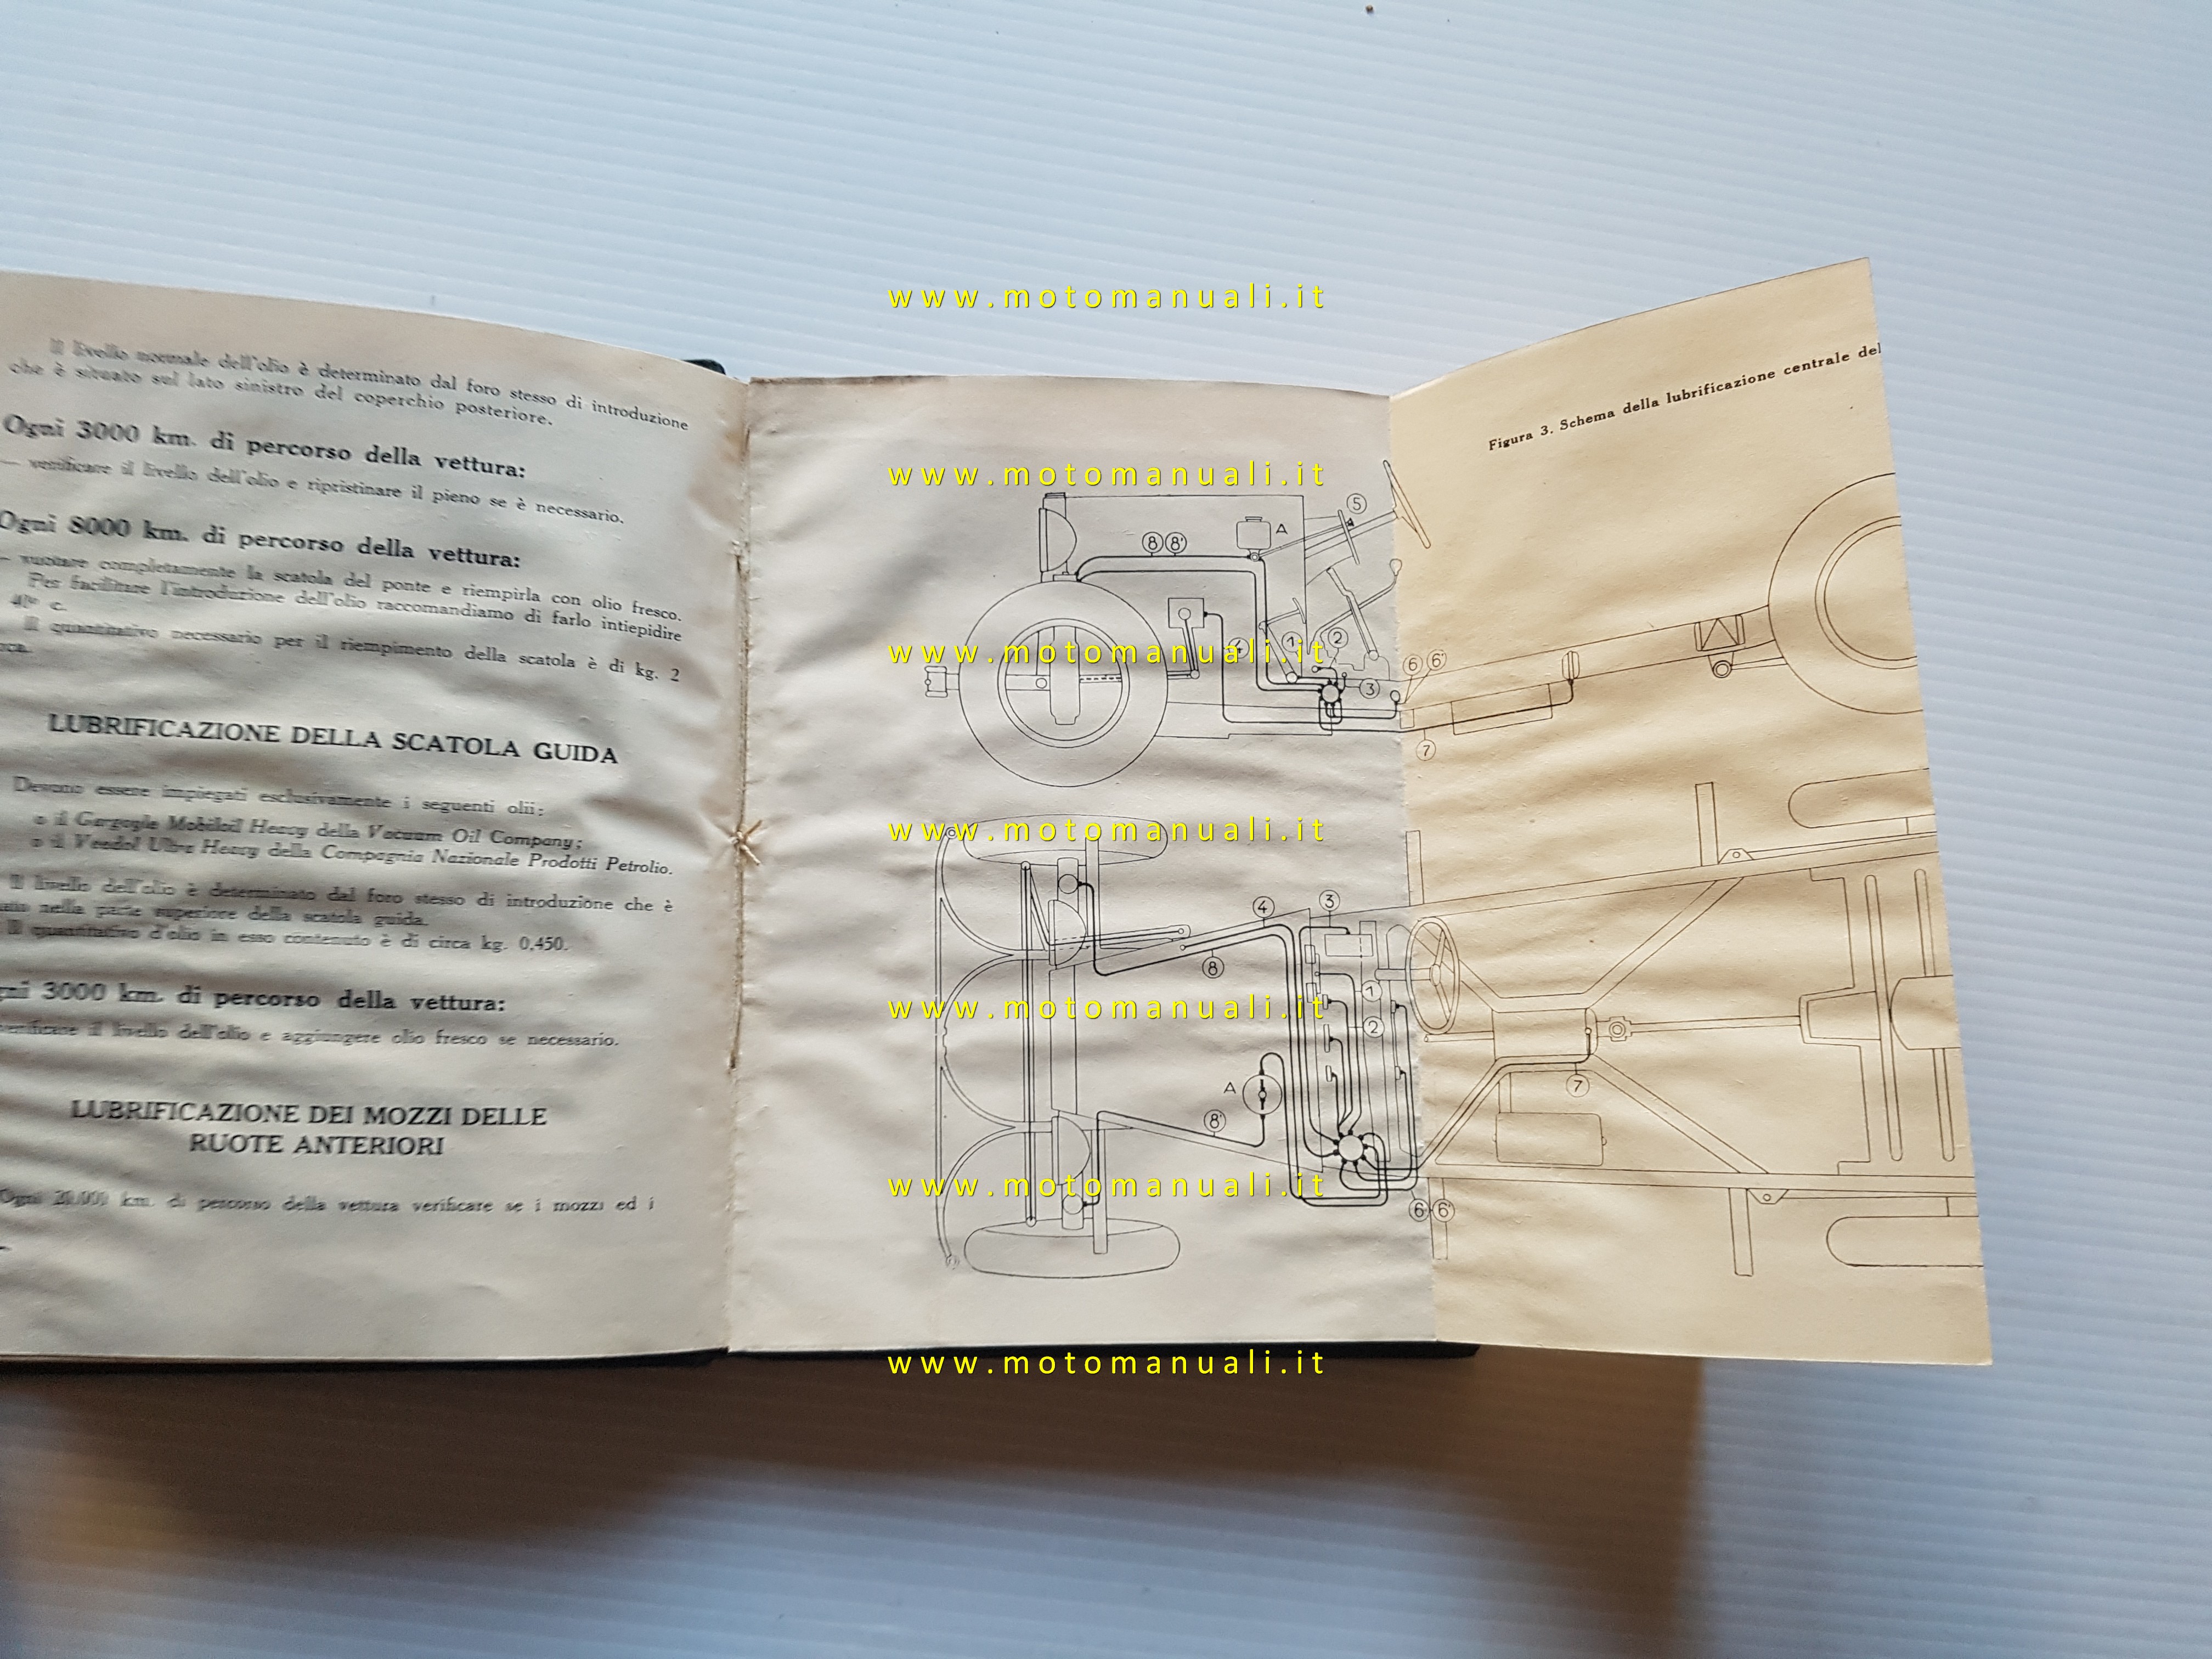 Il livello normale dell'olio è determinato dal foro stesso di introduzione
che è situato sul lato sinistro del coperchio posteriore.
Ogni 3000 km. di percorso della vettura:
— verificare il livello dell'olio e ripristinare il pieno se è necessario.
Ogni 8000 km. di percorso della vettura:
— vuotare completamente la scatola del ponte e riempirla con olio fresco.
Per facilitare l'introduzione dell'olio raccomandiamo di farlo intiepidire
c.
Il quantitativo necessario per il riempimento della scatola è di kg. 2
LUBRIFICAZIONE DELLA SCATOLA GUIDA
Devono essere impiegati esclusivamente i seguenti olii:
o il Gargoyle Mobiloil Heavy della Vacuum Oil Company;
o il Veedol Ultra Heavy della Compagnia Nazionale Prodotti Petrolio.
Il livello dell'olio è determinato dal foro stesso di introduzione che è
nella parte superiore della scatola guida.
Il quantitativo d'olio in esso contenuto è di circa kg. 0,450.
3000 km. di percorso della vettura:
verificare il livello dell'olio e aggiungere olio fresco se necessario.
LUBRIFICAZIONE DEI MOZZI DELLE
RUOTE ANTERIORI
Ogni 20.000 km. di percorso della vettura verificare se i mozzi ed i
Figura 3. Schema della lubrificazione centrale del
5
A
8 8'
4 1 2
6 6'
3
7
4 3
8
1
2
A
7
8'
6 6'
www.motomanuali.it
www.motomanuali.it
www.motomanuali.it
www.motomanuali.it
www.motomanuali.it
www.motomanuali.it
www.motomanuali.it